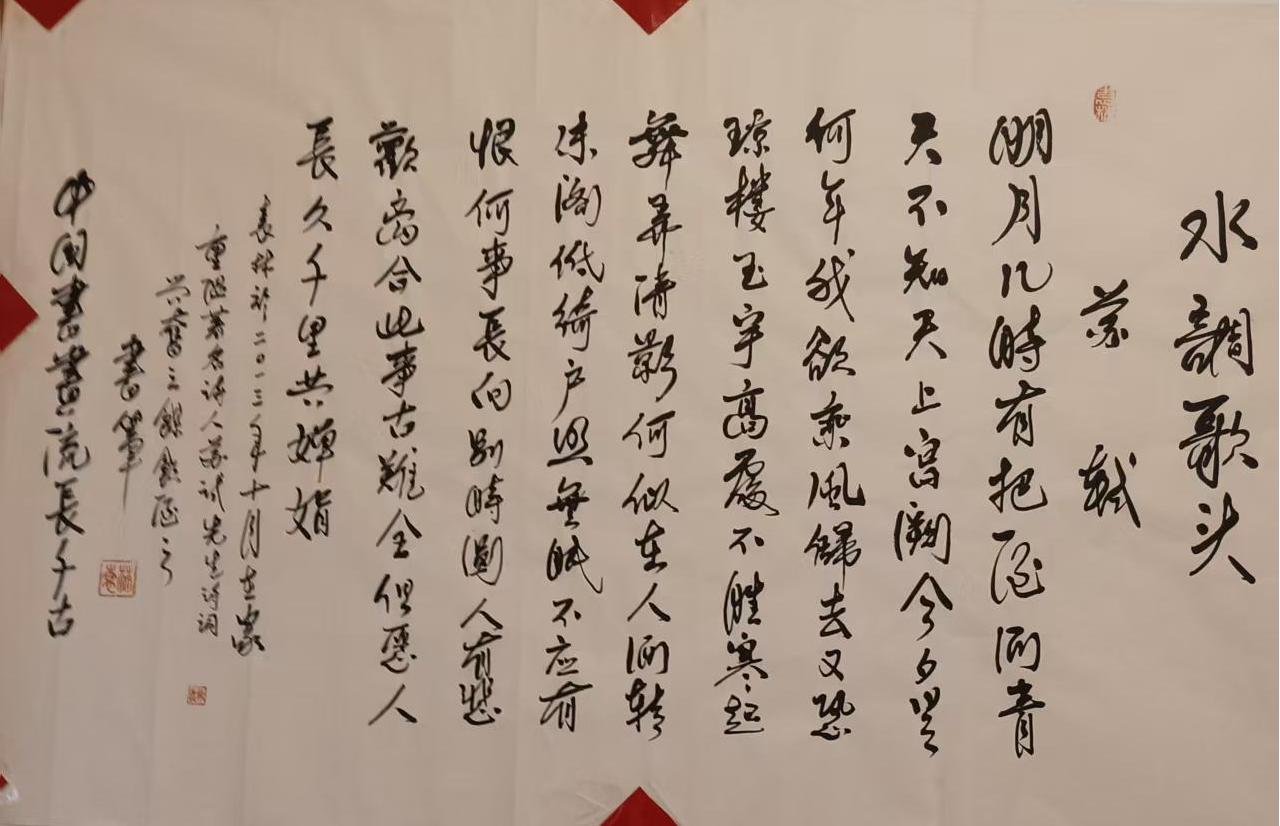 水調歌头
苏轼
明月几時有把酒问青
天不知天上宫阙今夕是
何年我欲乘風归去又恐
琼樓玉宇高處不胜寒起
舞弄清影何似在人间转
朱阁低绮户照無眠不应有
恨何事長向别時圆人有悲
歡离合此事古難全但愿人
長久千里共婵娟
長林於二〇一三年十月在家
重温著名诗人苏轼先生诗词
兴奮之餘
書筆
中国書畫流長千古